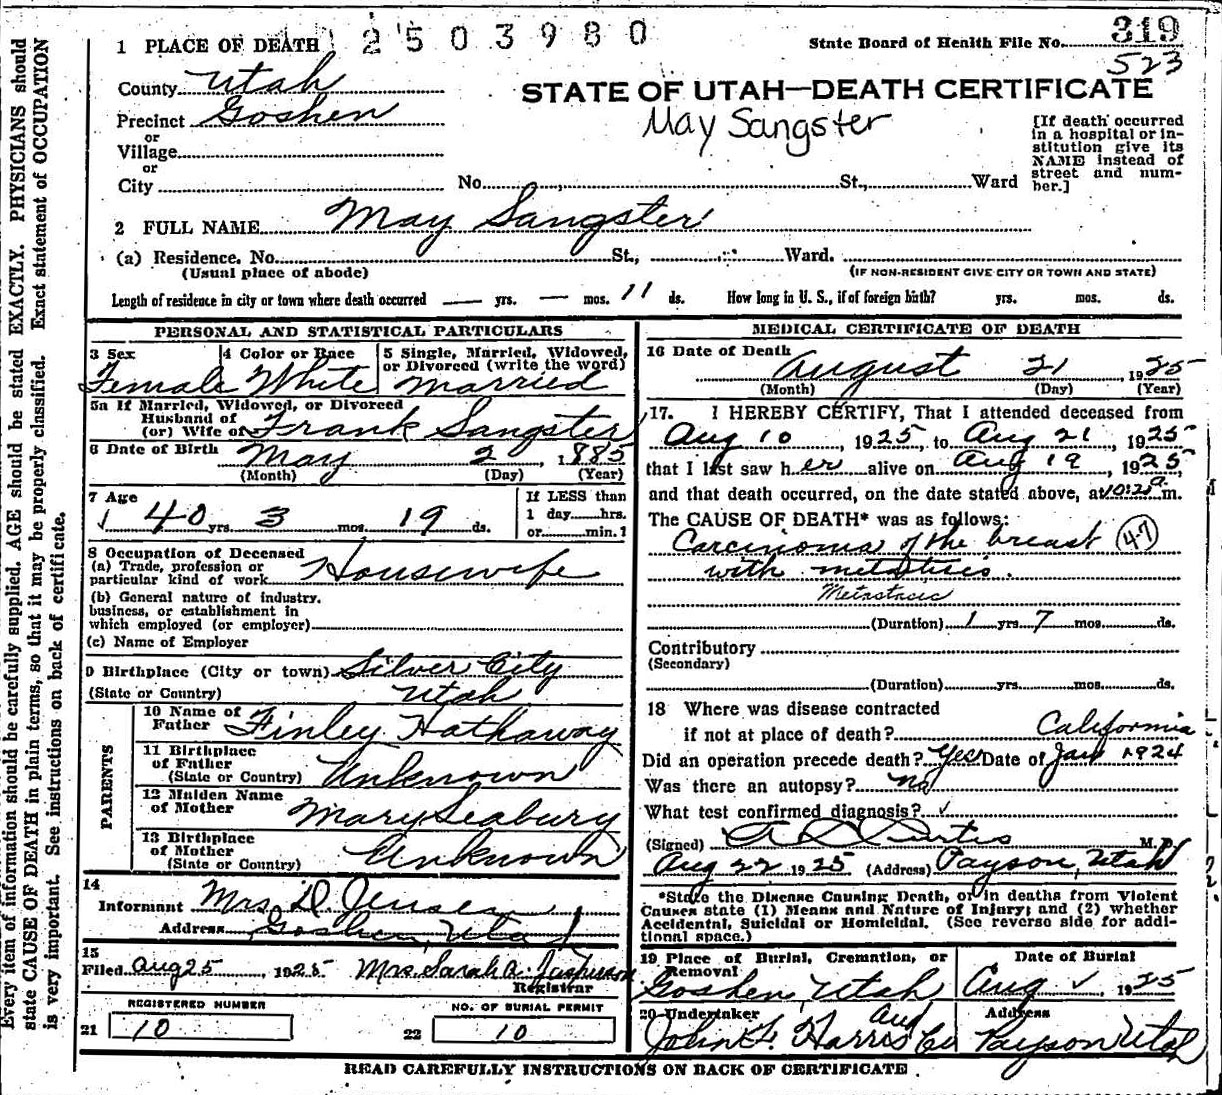 1 PLACE OF DEATH 2503980
State Board of Health File No. 319
523
County Utah
STATE OF UTAH—DEATH CERTIFICATE
Precinct Goshen
May Sangster
or
Village
or
City No. St., Ward
[If death occurred
in a hospital or in-
stitution give its
NAME instead of
street and num-
ber.]
2 FULL NAME May Sangster
(a) Residence. No. St., Ward.
(Usual place of abode)
(IF NON-RESIDENT GIVE CITY OR TOWN AND STATE)
Length of residence in city or town where death occurred — yrs. — mos. 11 ds. How long in U. S., if of foreign birth? yrs. mos. ds.
PERSONAL AND STATISTICAL PARTICULARS
3 Sex
Female
4 Color or Race
White
5 Single, Married, Widowed,
or Divorced (write the word)
Married
5a If Married, Widowed, or Divorced
Husband of
(or) Wife of Frank Sangster
6 Date of Birth May 2, 1885
(Month) (Day) (Year)
7 Age
40 yrs. 3 mos. 19 ds.
If LESS than
1 day hrs.
or min.
8 Occupation of Deceased
(a) Trade, profession or
particular kind of work Housewife
(b) General nature of industry,
business, or establishment in
which employed (or employer)
(c) Name of Employer
9 Birthplace (City or town) Silver City
(State or Country) Utah
PARENTS
10 Name of
Father Finley Hathaway
11 Birthplace
of Father
(State or Country) Unknown
12 Maiden Name
of Mother Mary Seabury
13 Birthplace
of Mother
(State or Country) Unknown
14
Informant Mrs. D. Jensen
Address Goshen, Utah
15
Filed Aug 25, 1925 Mrs. Sarah A.
Registrar
REGISTERED NUMBER
21 10
NO. OF BURIAL PERMIT
22 10
MEDICAL CERTIFICATE OF DEATH
16 Date of Death
August 21 1925
(Month) (Day) (Year)
17. I HEREBY CERTIFY, That I attended deceased from
Aug 10, 1925, to Aug 21, 1925
that I last saw her alive on Aug 19, 1925,
and that death occurred, on the date stated above, at m.
The CAUSE OF DEATH* was as follows:
Carcinoma of the breast 47
with metatisis.
Metastasis
(Duration) 1 yrs. 7 mos. ds.
Contributory
(Secondary)
(Duration) yrs. mos. ds.
18 Where was disease contracted
if not at place of death? California
Did an operation precede death? Yes Date of Jan 1924
Was there an autopsy? no
What test confirmed diagnosis? ✓
(Signed) M.D.
Aug 22 1925 (Address) Payson, Utah
*State the Disease Causing Death, or in deaths from Violent
Causes state (1) Means and Nature of Injury; and (2) whether
Accidental, Suicidal or Homicidal. (See reverse side for addi-
tional space.)
19 Place of Burial, Cremation, or
Removal
Goshen, Utah
Date of Burial
Aug ✓, 1925
20 Undertaker
John F. Harris Co
Aug
Address
Payson Utah
READ CAREFULLY INSTRUCTIONS ON BACK OF CERTIFICATE
Every item of information should be carefully supplied. AGE should be stated EXACTLY. PHYSICIANS should
state CAUSE OF DEATH in plain terms, so that it may be properly classified. Exact statement of OCCUPATION
is very important. See instructions on back of certificate.